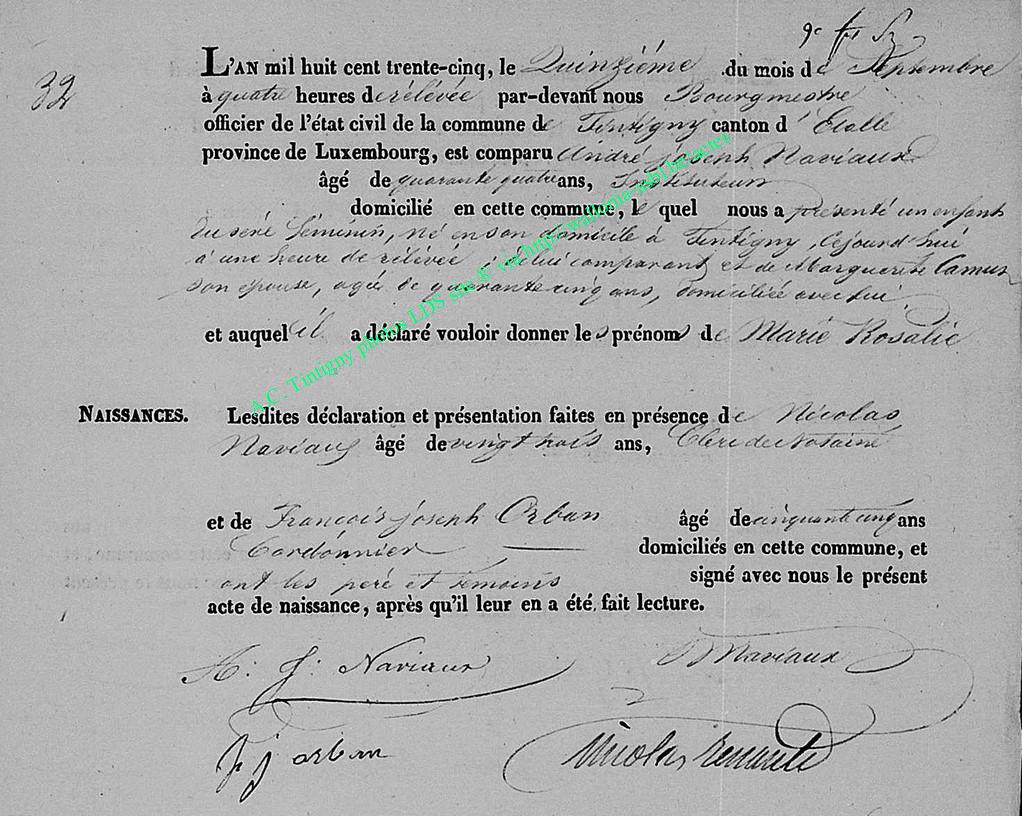 32
L'AN mil huit cent trente-cinq, le Quinziéme du mois de Septembre
à quatre heures de rélévée par-devant nous Bourgmestre
officier de l'état civil de la commune de Tintigny canton d'Etalle
province de Luxembourg, est comparu André joseph Naviaux
âgé de quarante quatre ans, Instituteur
domicilié en cette commune, le quel nous a présenté un enfant
du sexe féminin, né en son domicile à Tintigny, cejourd'hui
à une heure de rélévée, de lui comparant et de Marguerite Camus
son épouse, agée de quarante cinq ans, domiciliée avec lui
et auquel il a déclaré vouloir donner les prénoms de Marie Rosalie
NAISSANCES. Lesdites déclaration et présentation faites en présence de Nicolas
Naviaux âgé de vingt trois ans, Clerc de Notaire
et de François joseph Orban âgé de cinquante cinq ans
Cordonnier domiciliés en cette commune, et
ont les peré et temoins signé avec nous le présent
acte de naissance, après qu'il leur en a été fait lecture.
A. J. Naviaux Naviaux
f j orban Nicolas
A.C. Tintigny photos LDS site & via http://wallonia-asbl.be/actes